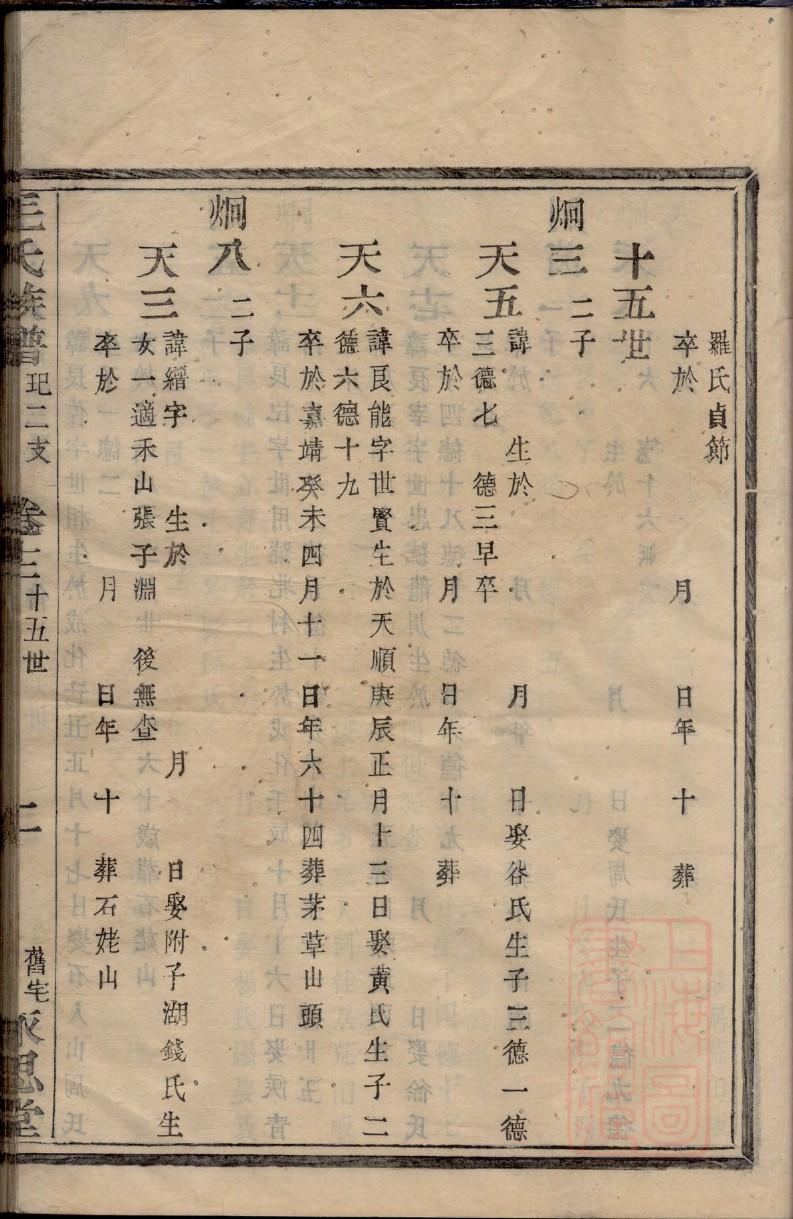 羅氏貞節
卒於 月 日年 十 葬
十五世
炯三 二子
天五 諱 生於 月 日娶谷氏生子三德一德
三德七 德三早卒
卒於 月 日年 十 葬
天六 諱良能字世賢生於天順庚辰正月十三日娶黄氏生子二
德六德十九
卒於嘉靖癸未四月十一日年六十四葬茅草山頭
炯八 二子
天三 諱縉字 生於 月 日娶附子湖錢氏生
女一適禾山張子淵 後無查
卒於 月 日年 十 葬石姥山
王氏族譜 玘二支 卷 十五世 二 舊宅永思堂
上海圖書館藏